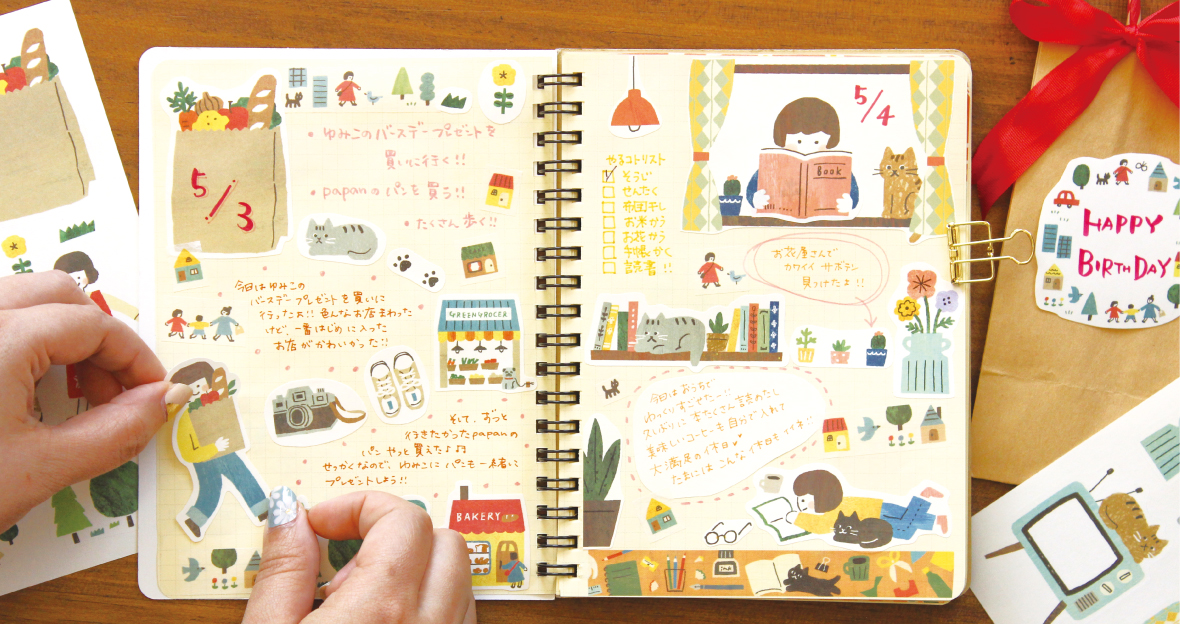 5/3
・ゆみこのバースデープレゼントを
買いに行く!!
・papanのパンを買う!!
・たくさん歩く!!
今日はゆみこの
バースデープレゼントを買いに
行ったよ!! 色んなお店まわった
けど、一番はじめに入った
お店がかわいかった!!
GREENGROCER
そして、ずっと
行きたかったpapanの
パンやっと買えた♪♪
せっかくなので、ゆみこにパンも一緒に
プレゼントしよう!!
BAKERY
5/4
Book
やるコトリスト
そうじ
せんたく
布団干し
お米かう
お花かう
手帳かく
読書!!
お花屋さんで
カワイイサボテン
見つけたよ!!
今日はおうちで
ゆっくりすごせた〜!!
久しぶりに本たくさん読めたし
美味しいコーヒーも自分で入れて
大満足の休日♥
たまにはこんな休日もイイネ!!
HAPPY
BIRTHDAY